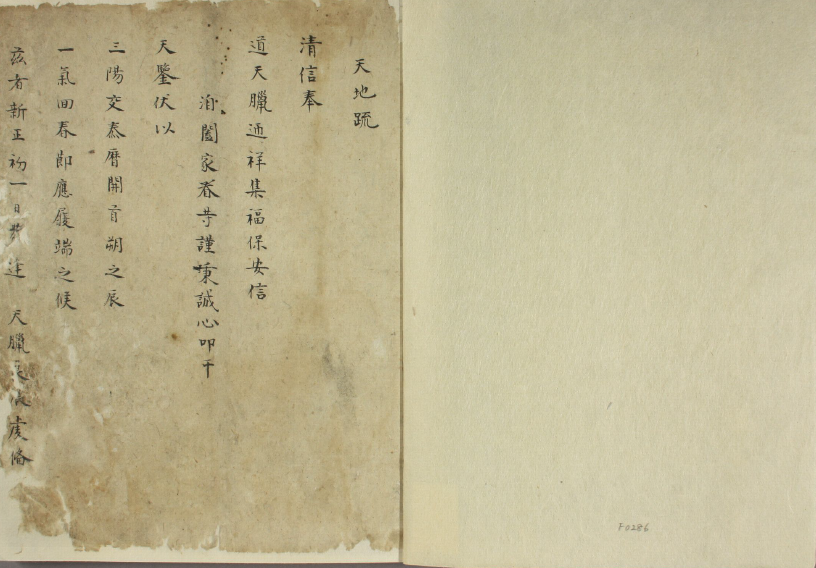 天地䟽
清信奉
道天臘迊祥集福保安信
洎闔家眷等謹秉誠心叩干
天鑒伏以
三陽交泰曆開首朔之辰
一氣回春節應履端之候
茲者新正初一日 逢 天臘 虔俻
F0286